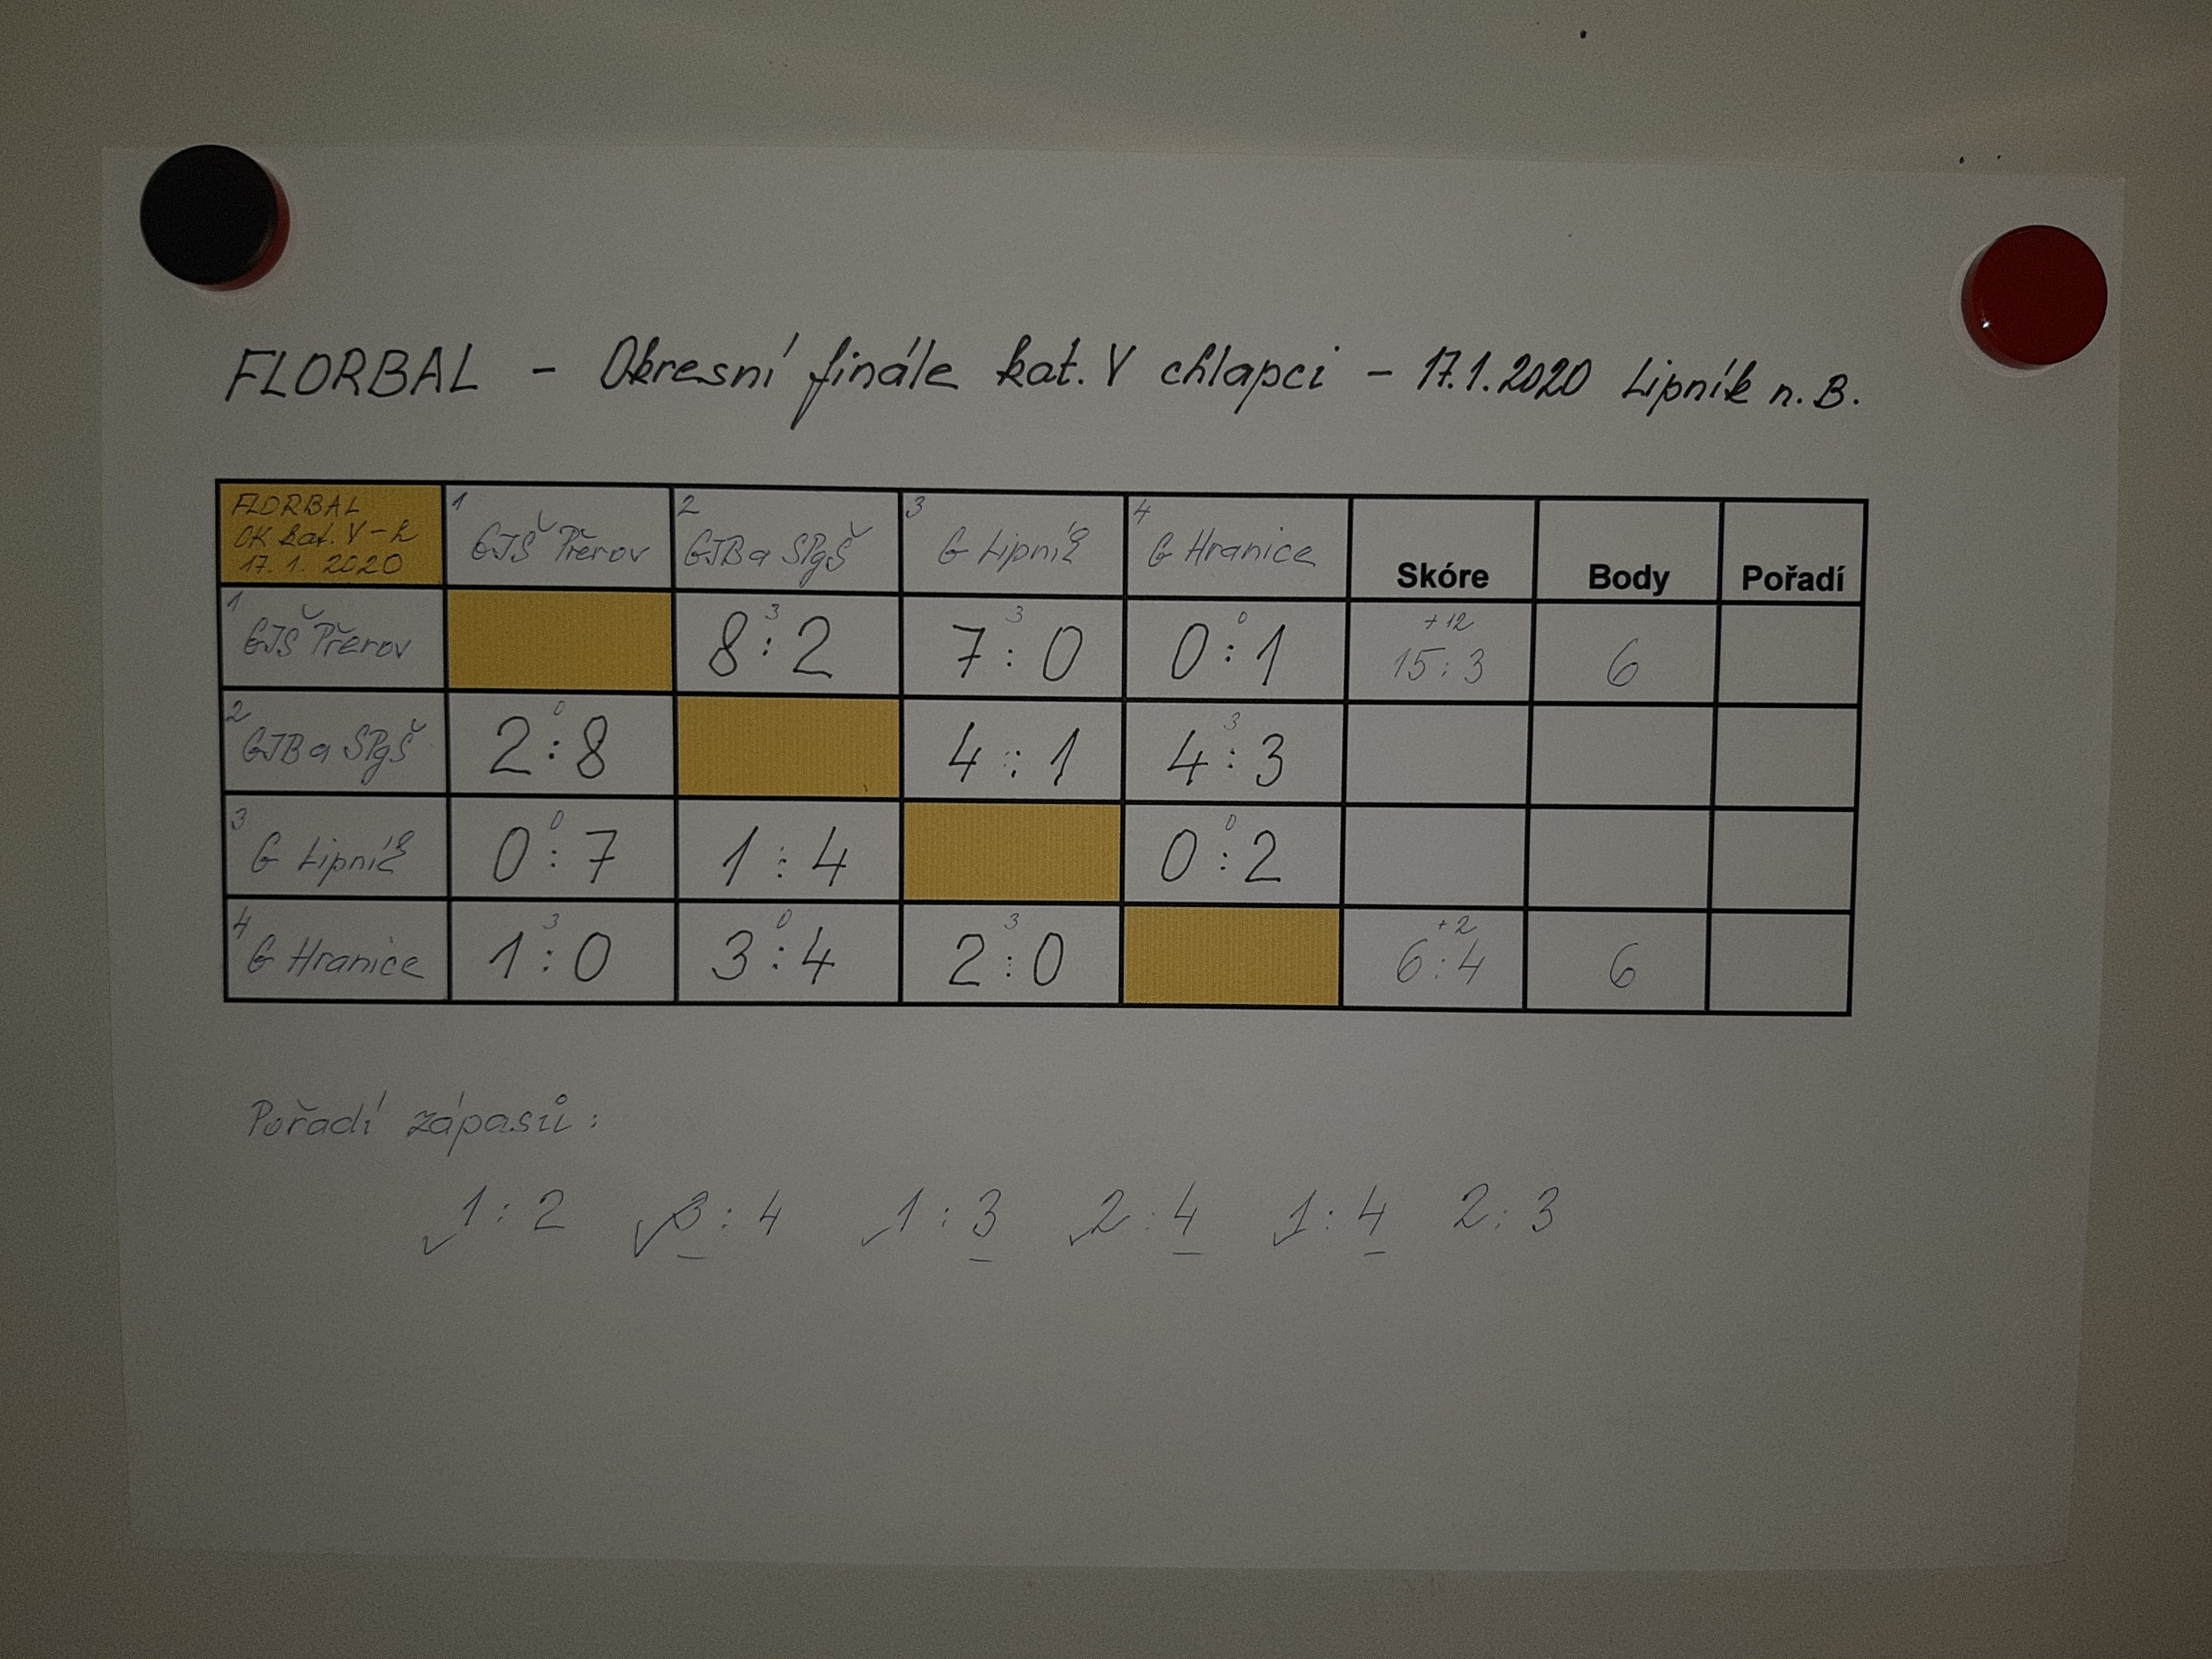 FLORBAL - Okresní finále kat. V chlapci - 17.1.2020 Lipník n. B.
FLORBAL
OK kat. V - h
17. 1. 2020
1 GJŠ Přerov
2 GJB a SPgŠ
3 G Lipník
4 G Hranice
Skóre
Body
Pořadí
1 GJŠ Přerov
3 8 : 2
3 7 : 0
0 0 : 1
+12 15 : 3
6
2 GJB a SPgŠ
0 2 : 8
4 : 1
3 4 : 3
3 G Lipník
0 0 : 7
1 : 4
0 0 : 2
4 G Hranice
3 1 : 0
0 3 : 4
3 2 : 0
+2 6 : 4
6
Pořadí zápasů :
1 : 2 3 : 4 1 : 3 2 : 4 1 : 4 2 : 3